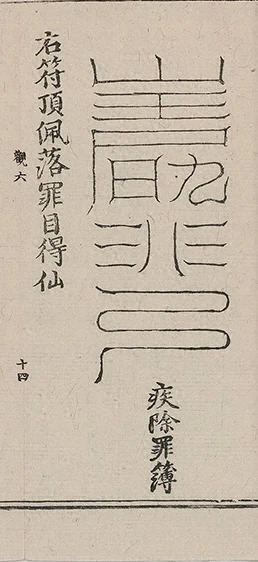 疾除罪簿
右符頂佩落罪目得仙
觀六
十四